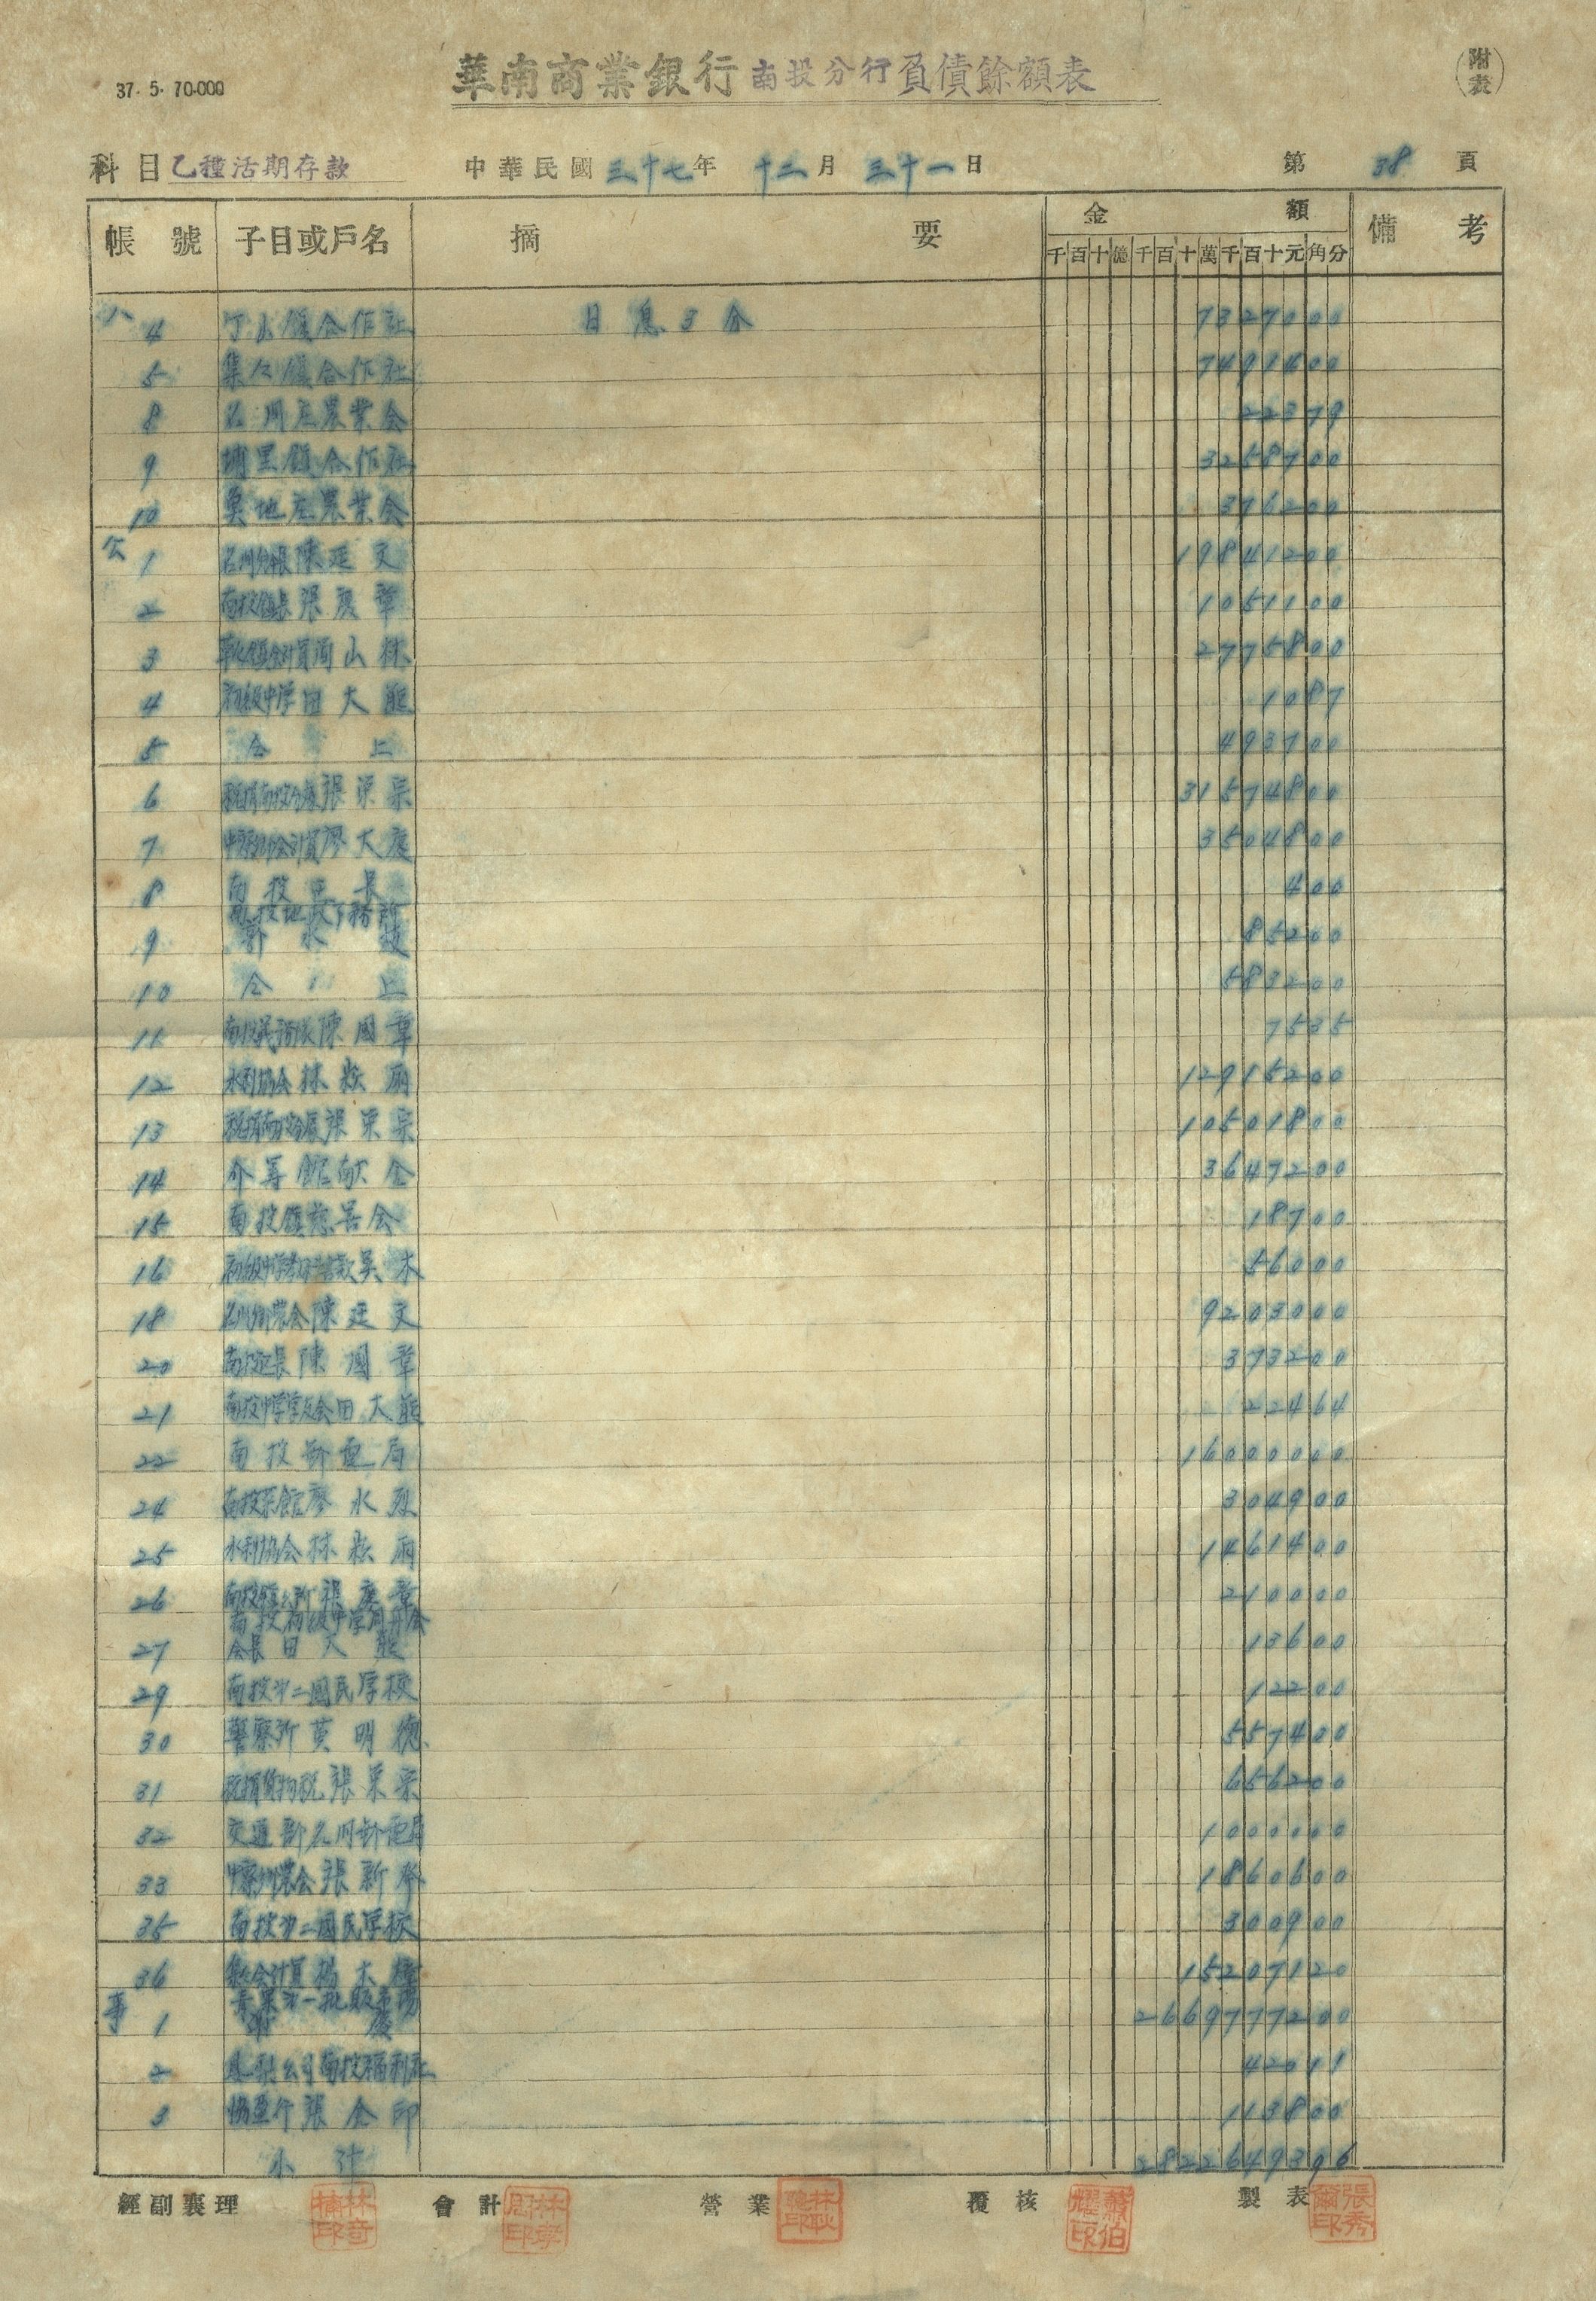 37. 5. 70.000
華南商業銀行南投分行負債餘額表
(附表)
科目乙種活期存款 中華民國三十七年十二月三十一日 第38頁
帳號 子目或戶名 摘要 金額 備考
千百十億千百十萬千百十元角分
4 合作社 日息3分 7327000
5 集々鎮合作社 7491600
8 名間庄農業会 22379
9 埔里鎮合作社 3258700
10 魚地庄農業会 376200
公 1 陳廷文 19841200
2 南投鎮長張慶章 1051100
3 山林 2775800
4 初級中学田大熊 1087
5 仝上 493700
6 張栄宗 31574800
7 廖大慶 3504800
8 南投區長 400
南投地政事務所
9 85200
10 仝上 583200
11 陳國章 7535
12 水利協会林崧雨 12915200
13 張栄宗 10501800
14 介壽館献金 3647200
15 南投鎮慈善会 18700
16 吳木 56000
18 陳廷文 9203000
20 南投區長陳國章 373200
21 田大熊 22464
22 南投郵電局 16000000
24 廖水烈 304900
25 水利協会林崧雨 1461400
26 南投鎮公所張慶章 210000
南投初級中学
27 会長田大熊 13600
29 南投第二國民学校 12200
30 警察所黄明德 557400
31 張栄宗 656200
32 交通部名间郵电局 1000000
33 張新 1860600
35 南投第二國民学校 300900
36 楊大 15207120
青果第一批販賣場
事 1 慶 2669777200
2 鳳梨公司南投福利社 42011
3 協益行張金印 113800
小計 2822649396
經副襄理 會計 營業 覆核 製表